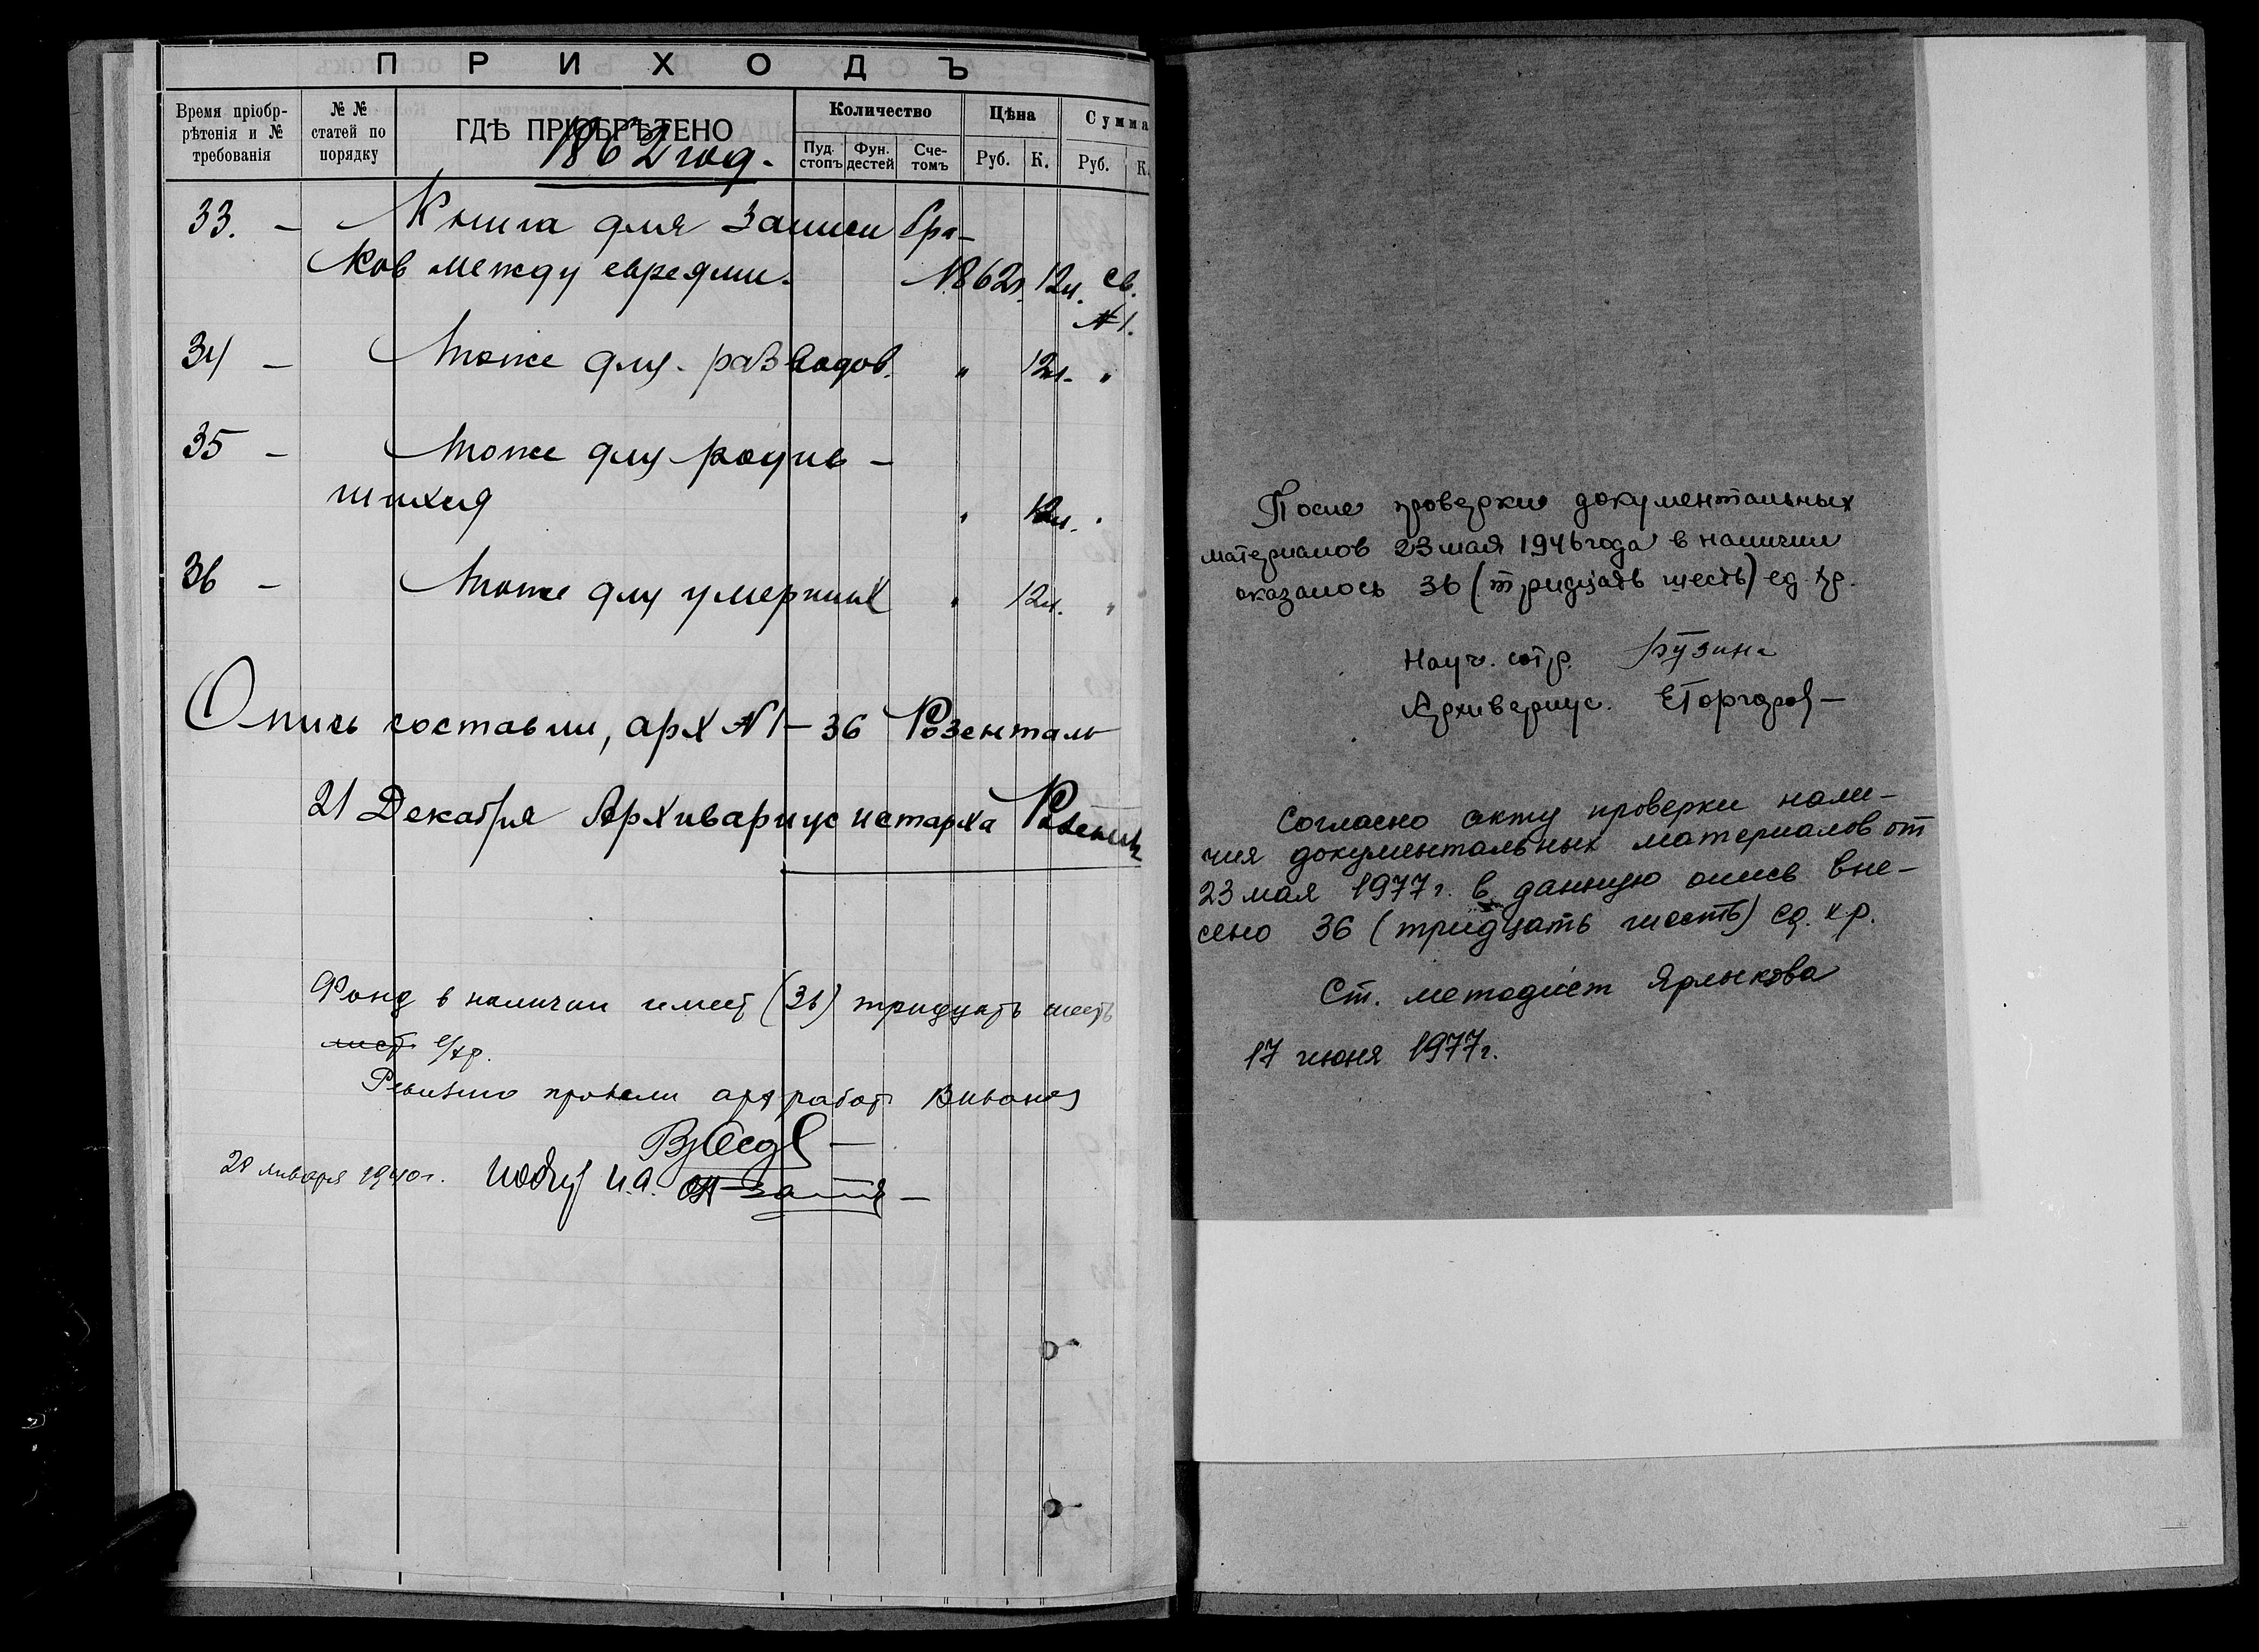 ПРИХОДЪ
Время пріобр-
рѣтенія и №
требованія
№ №
статей по
порядку
ГДѢ ПРІОБРѢТЕНО
Количество
Пуд.
стопъ
Фун.
дестей
Сче-
томъ
Цѣна
Руб. К.
Сумма
Руб. К.
1862 год.
33. — Книга для записи бра-
ков между евреями. 1862г. 12л. св.
№1.
34 — тоже для разводов. " 12л. "
35 — тоже для родив-
шихся " 12л. "
36 — тоже для умерших " 12л. "
Опись составил, арх №1-36 Розенталь
21 Декабря Архивариус истарха
Фонд в наличии имеет (36) тридцать шесть
лист е/хр.
Ревизию провели арх работ
28 января 1940г.
После проверки документальных
материалов 23 мая 1946 года в наличии
оказалось 36 (тридцать шесть) ед. хр.
Науч. сотр. Бузина
Архивариус.
Согласно акту проверки нали-
чия документальных материалов от
23 мая 1977г. в данную опись вне-
сено 36 (тридцать шесть) ед. хр.
Ст. методист Ярлыкова
17 июня 1977г.